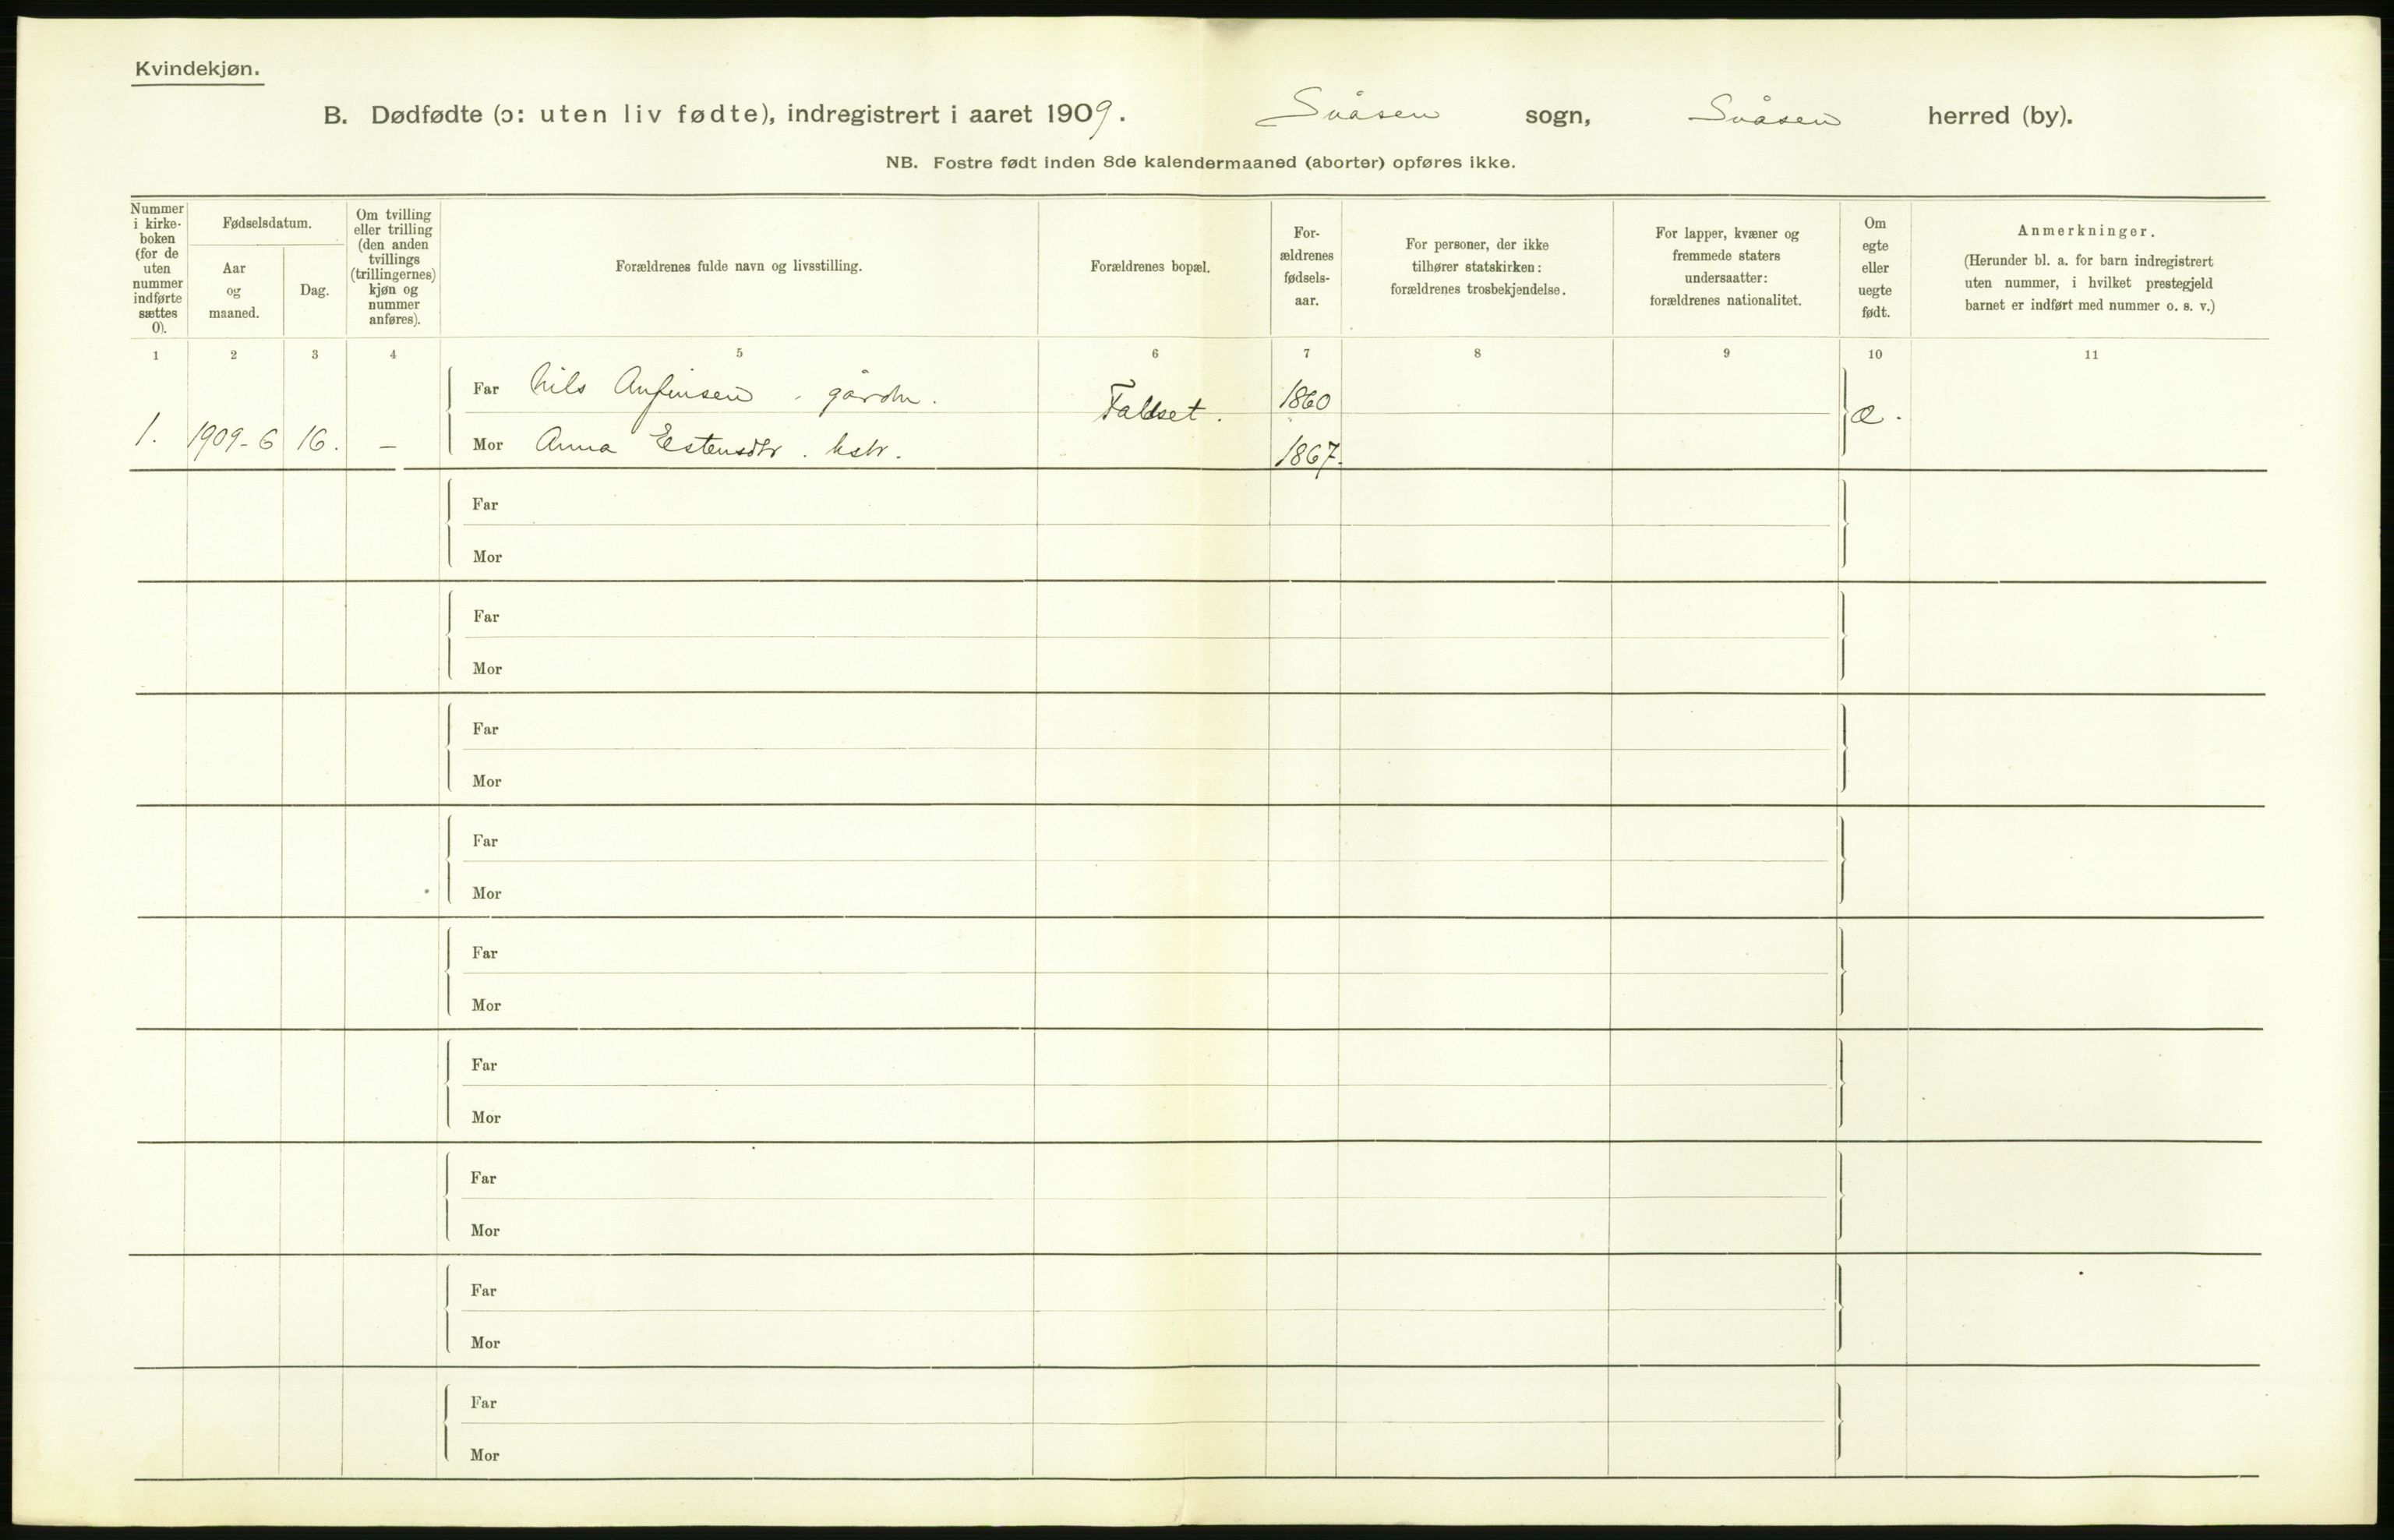 Kvindekjøn.
B. Dødfødte (ɔ: uten liv fødte), indregistrert i aaret 1909. Snåsen sogn, Snåsen herred (by).
NB. Fostre født inden 8de kalendermaaned (aborter) opføres ikke.
Nummer i kirke-boken (for de uten nummer indførte sættes 0).
Fødselsdatum.
Aar og maaned.
Dag.
Om tvilling eller trilling (den anden tvillings (trillingernes) kjøn og nummer anføres).
Forældrenes fulde navn og livsstilling.
Forældrenes bopæl.
For-ældrenes fødsels-aar.
For personer, der ikke tilhører statskirken: forældrenes trosbekjendelse.
For lapper, kvæner og fremmede staters undersaatter: forældrenes nationalitet.
Om egte eller uegte født.
Anmerkninger.
(Herunder bl. a. for barn indregistrert uten nummer, i hvilket prestegjeld barnet er indført med nummer o. s. v.)
1 2 3 4 5 6 7 8 9 10 11
Far Nils Anfinsen, gårdm. 1860
1. 1909-6 16. – Faldset. æ.
Mor Anna Estensdtr. hstr. 1867.
Far
Mor
Far
Mor
Far
Mor
Far
Mor
Far
Mor
Far
Mor
Far
Mor
Far
Mor
Far
Mor